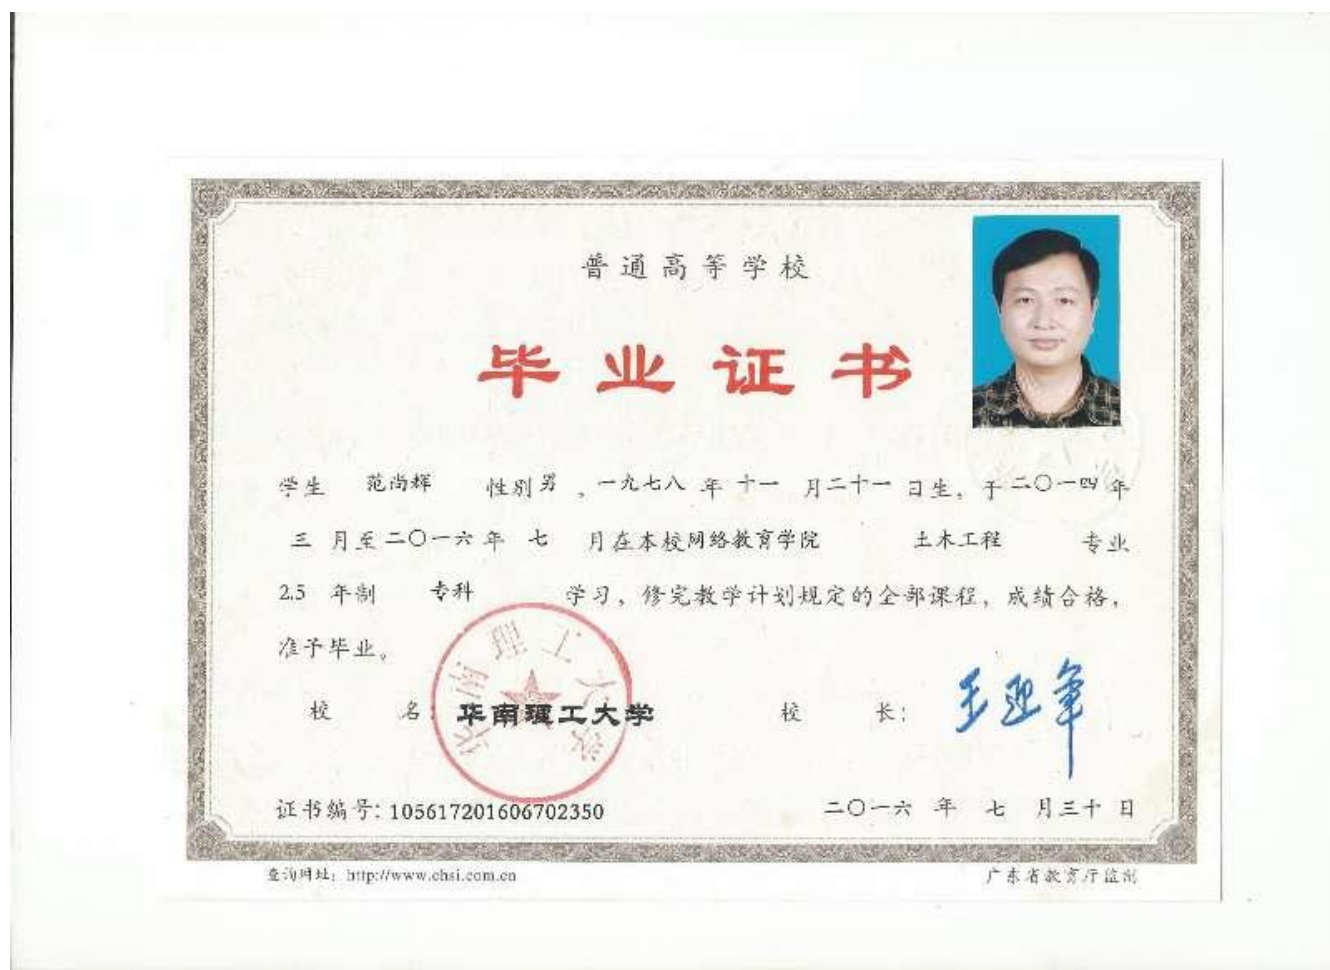 普通高等学校
毕业证书
学生 范尚辉 性别 男 ，一九七八 年 十一 月二十一 日生，于二〇一四 年
三 月至二〇一六 年 七 月在本校网络教育学院 土木工程 专业
2.5 年制 专科 学习，修完教学计划规定的全部课程，成绩合格，
准予毕业。
校 名：华南理工大学 校 长：王迎军
华南理工大学
证书编号：105617201606702350 二〇一六 年 七 月三十 日
查询网址：http://www.chsi.com.cn 广东省教育厅监制